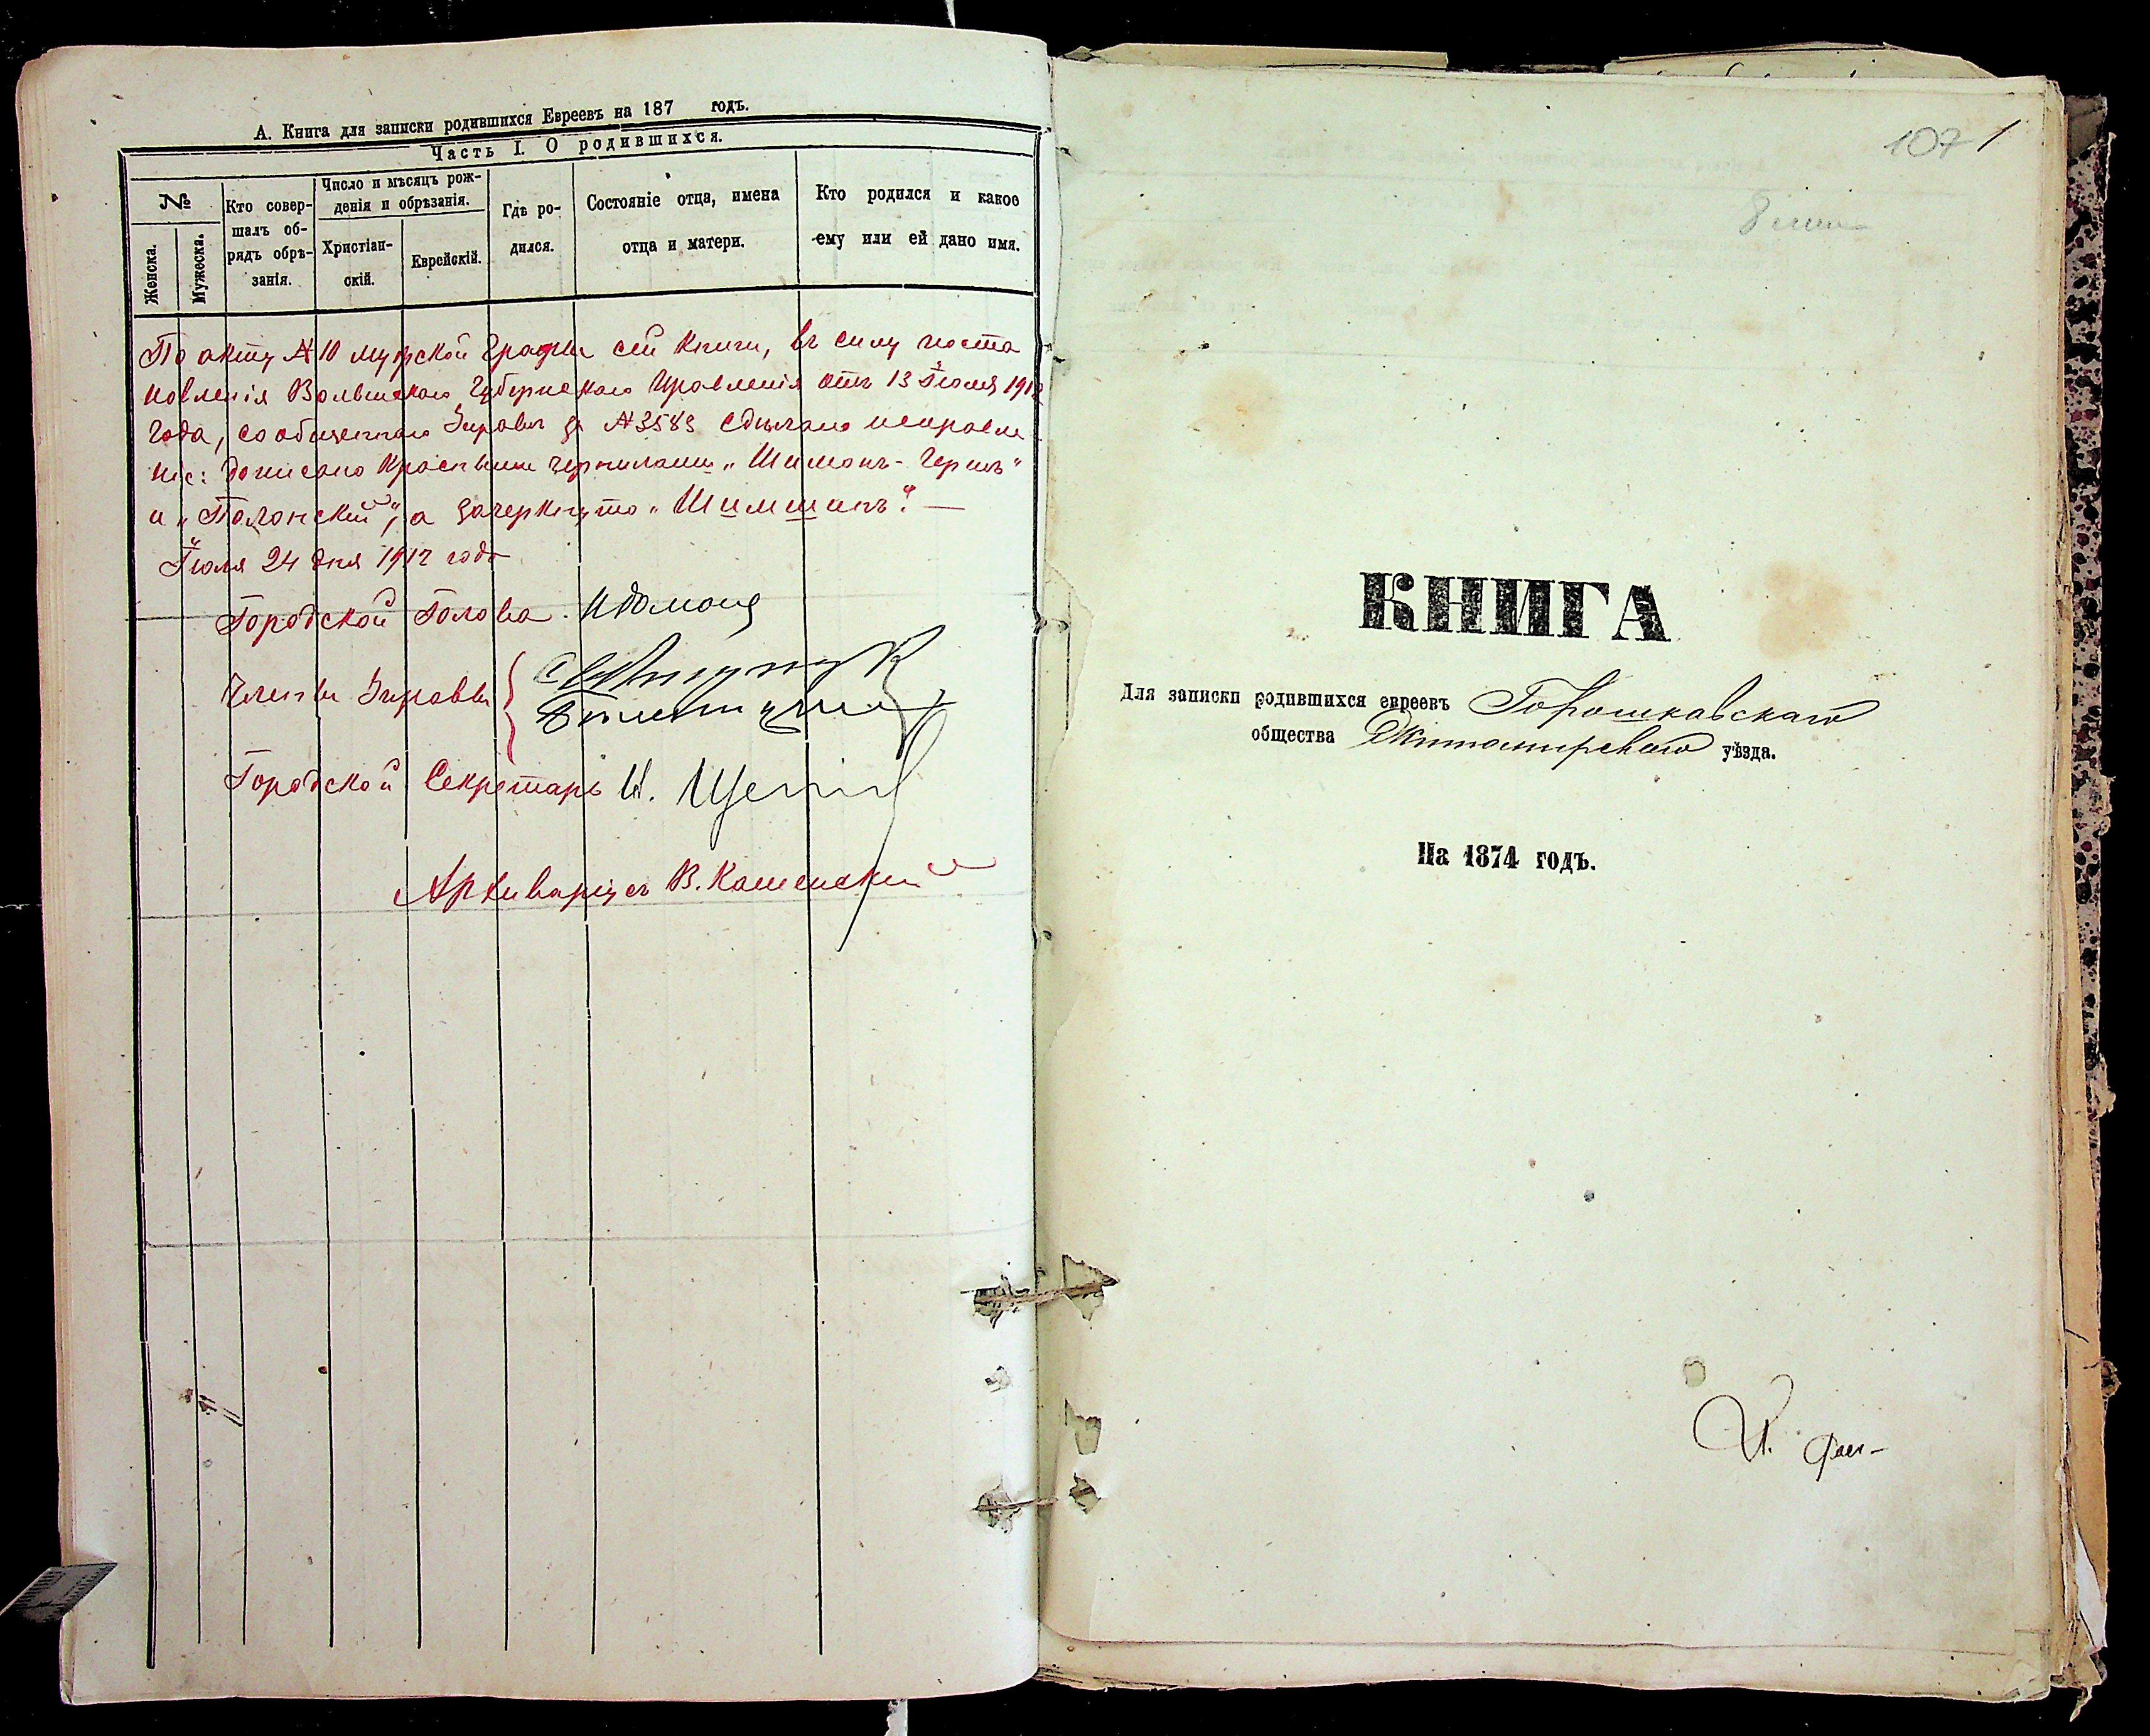 А. Книга для записки родившихся Евреевъ на 187 годъ.
Часть I. О родившихся.
№
Женска.
Мужеска.
Кто совер-
шалъ об-
рядъ обрѣ-
занія.
Число и мѣсяцъ рож-
денія и обрѣзанія.
Христіан-
скій.
Еврейскій.
Гдѣ ро-
дился.
Состояніе отца, имена
отца и матери.
Кто родился и какое
ему или ей дано имя.
По акту № 10 мужской графы сей книги, въ силу поста
новленія Волынскаго Губернскаго Правленія отъ 13 Іюля 1912
года, сообщеннаго Управѣ за № 3583 сдѣлано исправле
ніе: дописано красными чернилами „Шимонъ-Гершъ"
и „Полонский", а зачеркнуто „Шимшинъ". —
Іюля 24 дня 1912 года
Городской Голова
Члены Управы
Городской Секретарь И.
Архиваріусъ В. Каменский
107 1
КНИГА
Для записки родившихся евреевъ Горошковскаго
общества Житомирскаго уѣзда.
На 1874 годъ.